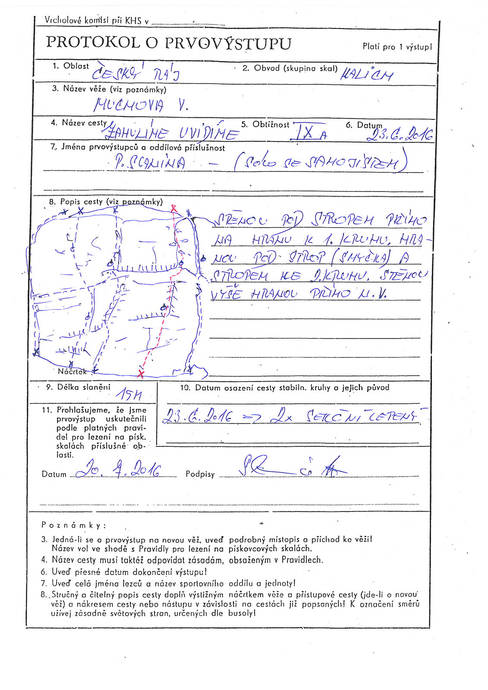 Vrcholové komisi při KHS v
PROTOKOL O PRVOVÝSTUPU Platí pro 1 výstup!
1. Oblast ČESKÝ RÁJ 2. Obvod (skupina skal) KALICH
3. Název věže (viz poznámky)
MLCHOVA V.
4. Název cesty ZAHULÍME UVIDÍME 5. Obtížnost IXA 6. Datum 23.6.2016
7. Jména prvovýstupců a oddílová příslušnost
P. SCANINA – (SÓLO SE SAMOJIŠTĚM)
8. Popis cesty (viz poznámky)
STĚNOU POD STROPEM PŘÍMO
NA HRANU K 1. KRUHU, HRA-
NOU POD STROP (SMYČKA) A
STROPEM KE 2. KRUHU. STĚNOU
VÝŠE HRANOU PŘÍMO N.V.
Náčrtek
9. Délka slanění 15M
10. Datum osazení cesty stabiln. kruhy a jejich původ
23.6.2016 => 2x
11. Prohlašujeme, že jsme
prvovýstup uskutečnili
podle platných pravi-
del pro lezení na písk.
skalách příslušné ob-
lasti.
Datum 20.7.2016 Podpisy
Poznámky:
3. Jedná-li se o prvovýstup na novou věž, uveď podrobný místopis a příchod ke věži!
Název vol ve shodě s Pravidly pro lezení na pískovcových skalách.
4. Název cesty musí taktéž odpovídat zásadám, obsaženým v Pravidlech.
6. Uveď přesné datum dokončení výstupu!
7. Uveď celá jména lezců a název sportovního oddílu a jednoty!
8. Stručný a čitelný popis cesty doplň výstižným náčrtkem věže a přístupové cesty (jde-li o novou
věž) a nákresem cesty nebo nástupu v závislosti na cestách již popsaných! K označení směrů
užívej zásadně světových stran, určených dle busoly!